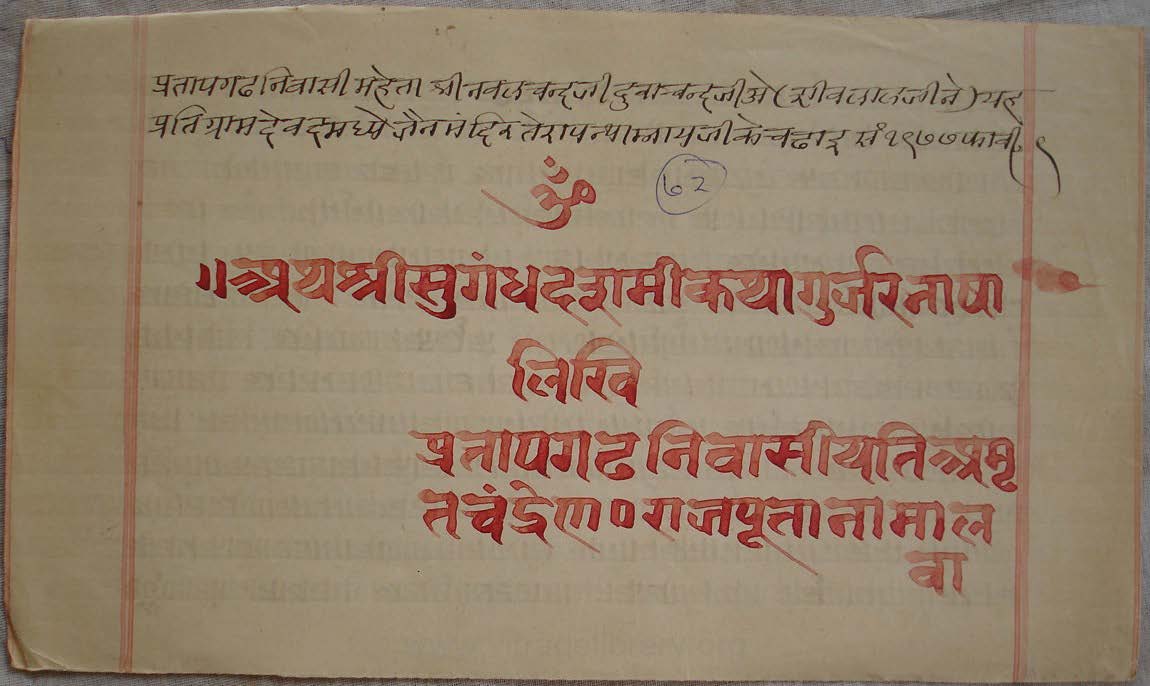 प्रतापगढ निवासी महेता श्री नवलचन्दजी दुवाचन्दजीओ (सीवलालजीने) यह
प्रति ग्राम देवदमध्ये जैन मंदिर तेरापन्थाम्नायजी के चढाइ सं १९७७ फा
ॐ
७२
॥ अथ श्री सुगंधदशमी कथा गुर्जर भाषा
लिखि
प्रतापगढ निवासी यति अमृ
तचंद्रेण ० राजपूताना माल
वा